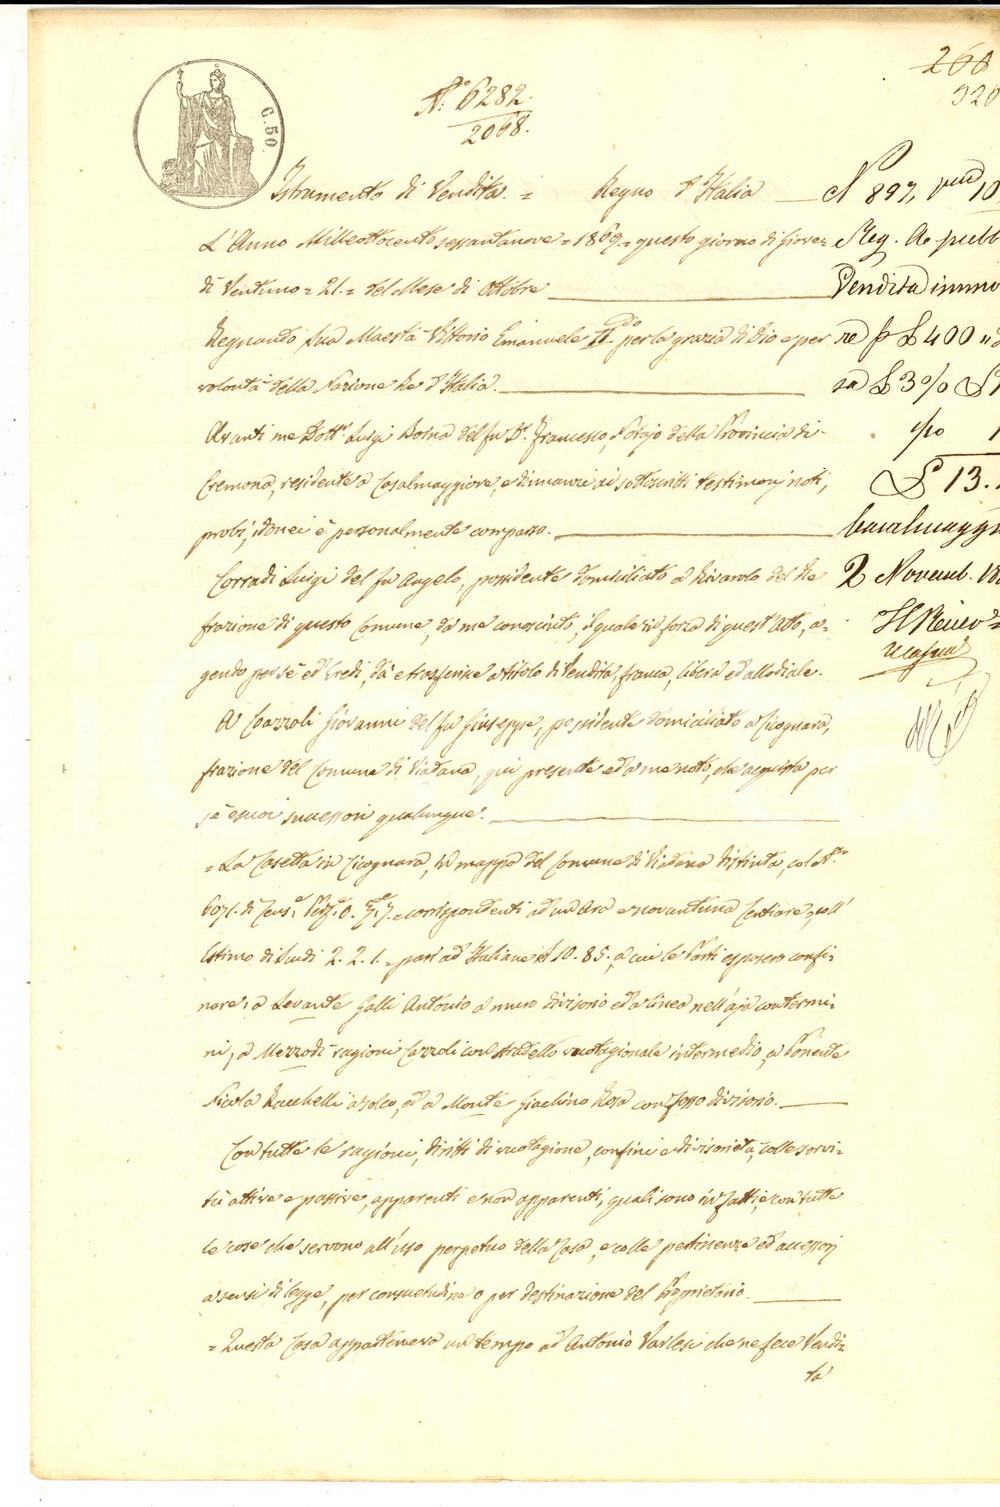 260
320
C. 50
N.° 6282.
2068.
Istrumento di Vendita. = Regno d'Italia
L'Anno Milleottocentosessantanove = 1869 = questo giorno di Giove=
dì Ventuno = 21. = del Mese di Ottobre
Regnando Sua Maestà Vittorio Emanuele II.do per la grazia di Dio e per
volontà della Nazione Re d'Italia.
Avanti me Dott.r Luigi del fu D.r Francesco, Notajo della Provincia di
Cremona, residente a Casalmaggiore, e dinnanzi ai sottoscritti testimonj noti,
probi, idonei è personalmente comparso.
Corradi Luigi del fu Angelo, possidente domiciliato a Rivarolo del Re
frazione di questo Comune, da me conosciuto, il quale in forza di quest'Atto, a=
gendo per sè ed Eredi, dà e trasferisce a titolo di Vendita franca, libera ed allodiale.
A Cazzoli Giovanni del fu Giuseppe, possidente domiciliato a Cicognara,
frazione del Comune di Viadana, qui presente ed a me noto, che acquista per
sè e suoi successori qualunque.
= La Casetta in Cicognara, in mappa del Comune di Viadana distinta, col N.°
6071. di Cens.e Pert.e 0. corrispondenti ad un'Ara e novantuna Centiare, coll'
Estimo di Scudi 2. 2. 1. pari ad Italiane £ 10. 85., a cui le Parti esposero confi=
nare: a Levante Galli Antonio a muro divisorio ed a linea nell'aja con termi=
ni, a Mezzodì ragioni Cazzoli con stradello intermedio, a Ponente
Nicola a solco, ed a Monte Giachino Rosa con fosso divisorio.
Con tutte le ragioni, diritti di, confini e divisorietà, colle servi=
tù attive e passive, apparenti e non apparenti, quali sono in fatti, e con tutte
le cose che servono all'uso perpetuo della Casa, e colle pertinenze ed accessorj
a sensi di legge, per consuetudine o per destinazione del Proprietario.
= Questa Casa apparteneva un tempo ad Antonio che ne fece Vendi=
ta
N 897, 10
Reg. A pubb
Vendita immo
re p £ 400
sa £ 3% £
£ 13.
Casalmaggi
2 Novemb. 18
Il Ricev=